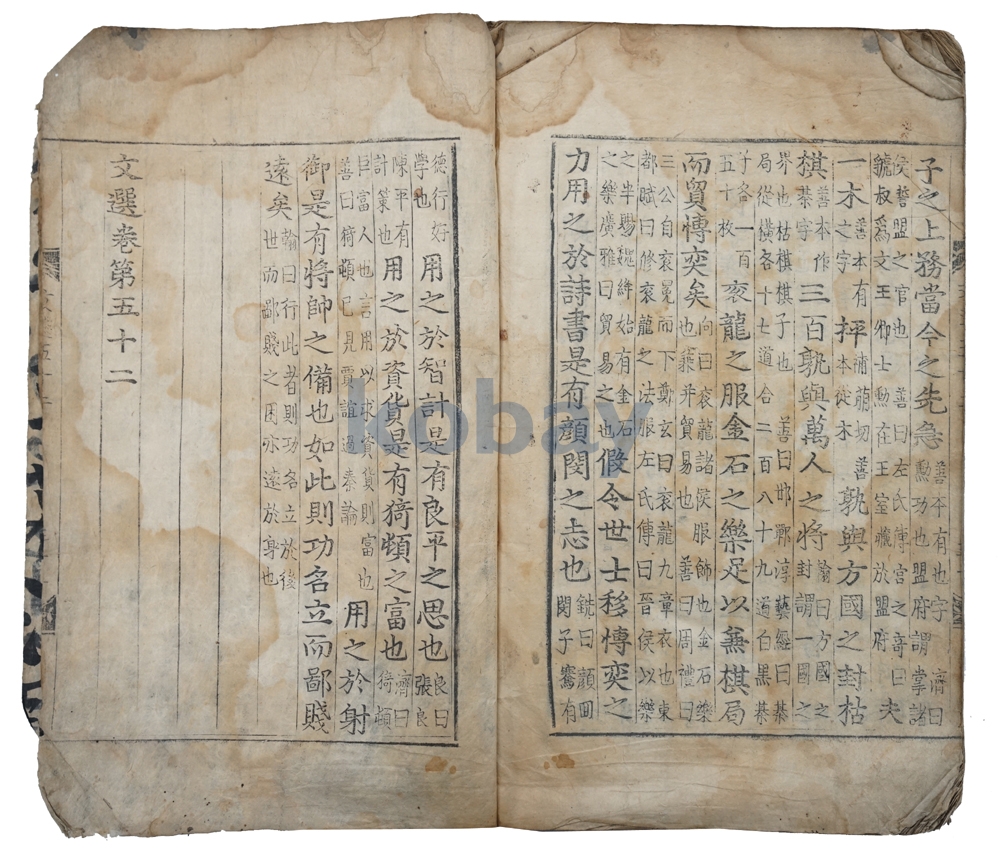 子之上務當今之先急善本有也字 濟曰勳功也盟府謂掌諸
侯誓盟之官也 善曰左氏傳宮之奇曰虢叔爲文王卿士勳在王室藏於盟府 夫
一木善本有之字枰補萌切 善本從木孰與方國之封枯
棋善本作棊字三百孰與萬人之將翰曰方國之封謂一國之
界也枯棋棋子也 善曰邯鄲淳藝經曰棊局從橫各十七道合二百八十九道白黑棊
子各一百五十枚衮龍之服金石之樂足以兼棋局
而貿博奕矣向曰衮龍諸侯服飾也金石樂也兼并貿易也 善曰周禮曰
三公自衮冕而下鄭玄曰衮龍九章衣也東都賦曰修衮龍之法服左氏傳曰晉侯以樂
之半賜魏絳始有金石之樂廣雅曰貿易之也假令世士移博奕之
力用之於詩書是有顏閔之志也銑曰顏回閔子騫有
德行好學也用之於智計是有良平之思也良曰張良
陳平有計策也用之於資貨是有猗頓之富也濟曰猗頓
巨富人也言用以求資貨則富也善曰猗頓已見賈誼過秦論用之於射
御是有將帥之備也如此則功名立而鄙賤
遠矣翰曰行此者則功名立於後世而鄙賤之困亦遠於身也
文選卷第五十二
kobay